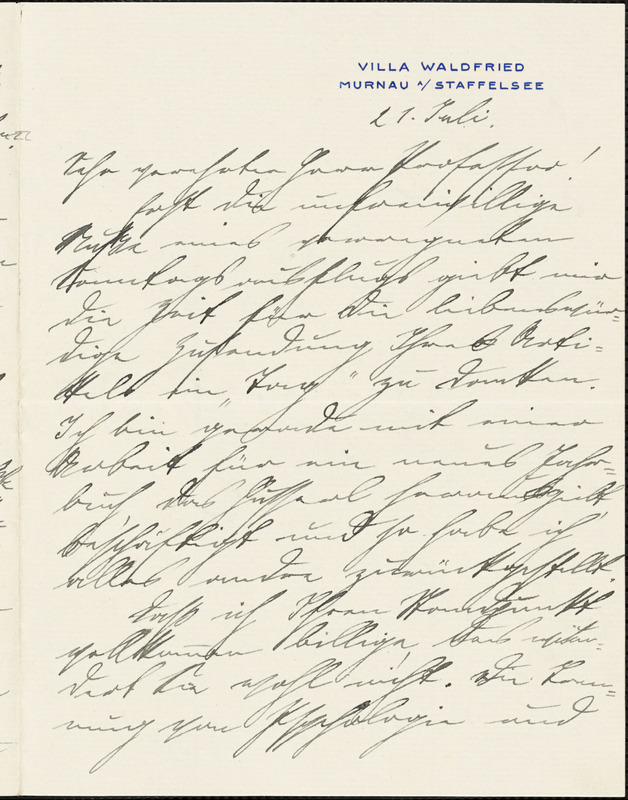 VILLA WALDFRIED
MURNAU A/STAFFELSEE
21. Juli.
Sehr verehrter Herr Professor!
Erst die unfreiwillige
Muße eines verregneten
Sonntagsausflugs giebt mir
die Zeit für die liebenswür=
dige Zusendung Ihres Arti=
kels im „Tag" zu danken.
Ich bin gerade mit einer
Arbeit für ein neues Jahr=
buch das Husserl herausgiebt
beschäftigt und so habe ich
alles andre zurückgestellt.
Daß ich Ihren Standpunkt
vollkommen billige, das wun=
dert Sie wohl nicht. Die Tren=
nung von Psychologie und